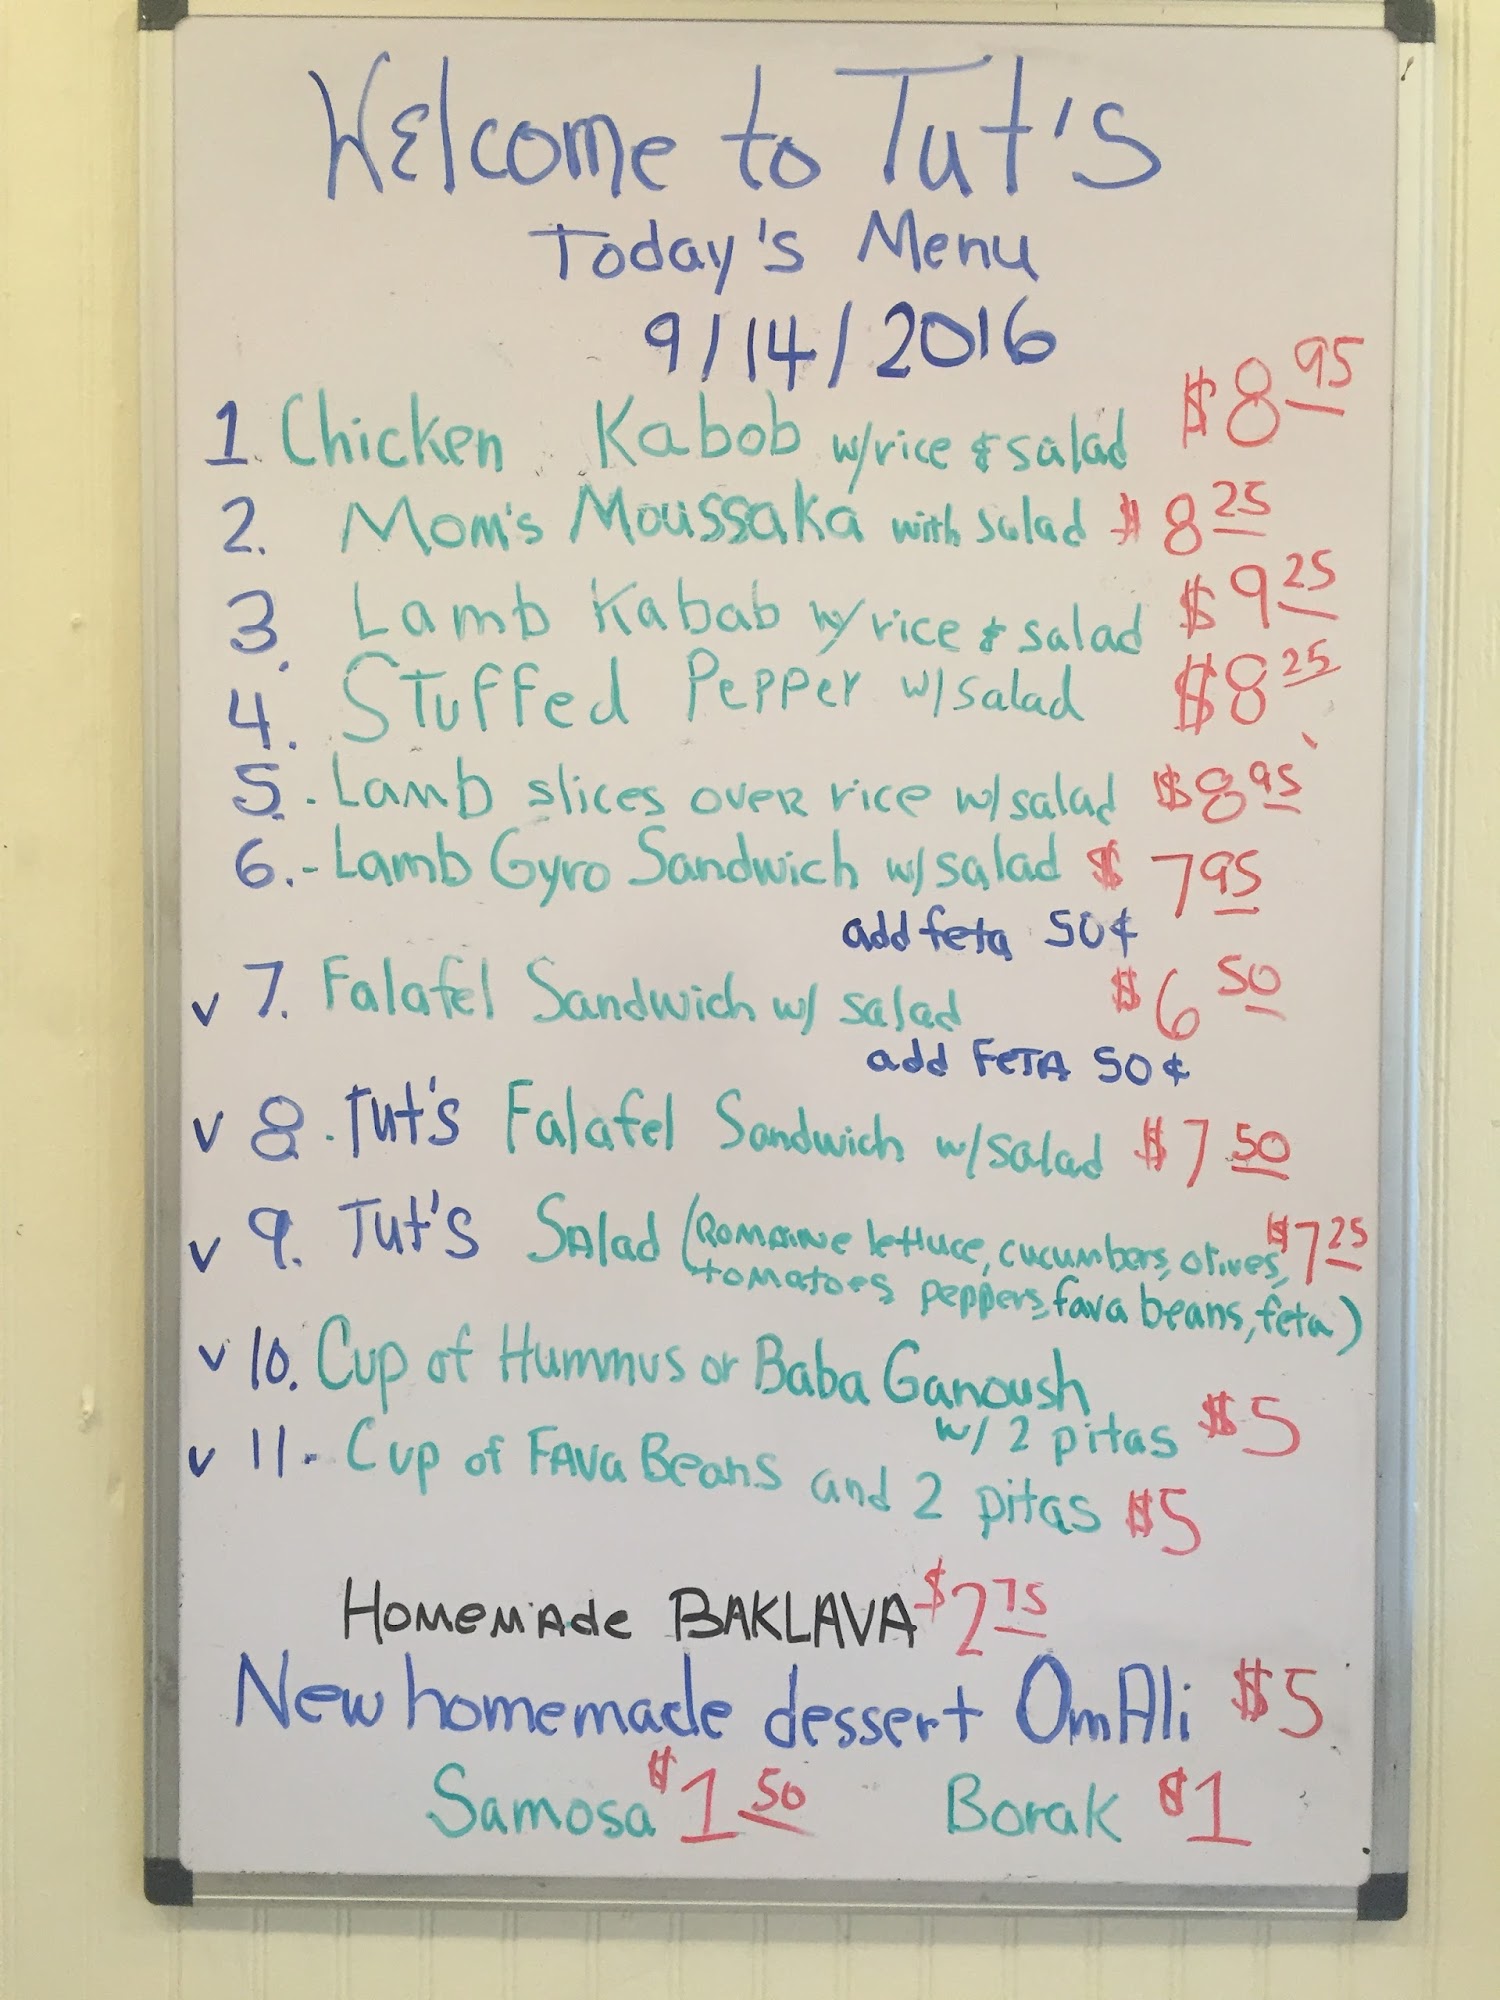 Welcome to Tut's
Today's Menu
9/14/2016
1. Chicken Kabob w/rice & salad $8.95
2. Mom's Moussaka with salad $8.25
3. Lamb Kabab w/ rice & salad $9.25
4. Stuffed Pepper w/salad $8.25
5. - Lamb slices over rice w/salad $8.95
6. - Lamb Gyro Sandwich w/salad $7.95
add feta 50¢
v 7. Falafel Sandwich w/ salad $6.50
add FeTA 50¢
v 8. Tut's Falafel Sandwich w/salad $7.50
v 9. Tut's Salad (Romaine lettuce, cucumbers, olives, $7.25
tomatoes peppers, fava beans, feta)
v 10. Cup of Hummus or Baba Ganoush
w/ 2 pitas $5
v 11- Cup of FAva Beans and 2 pitas $5
Homemade BAKLAVA $2.75
New homemade dessert OmAli $5
Samosa $1.50 Borak $1